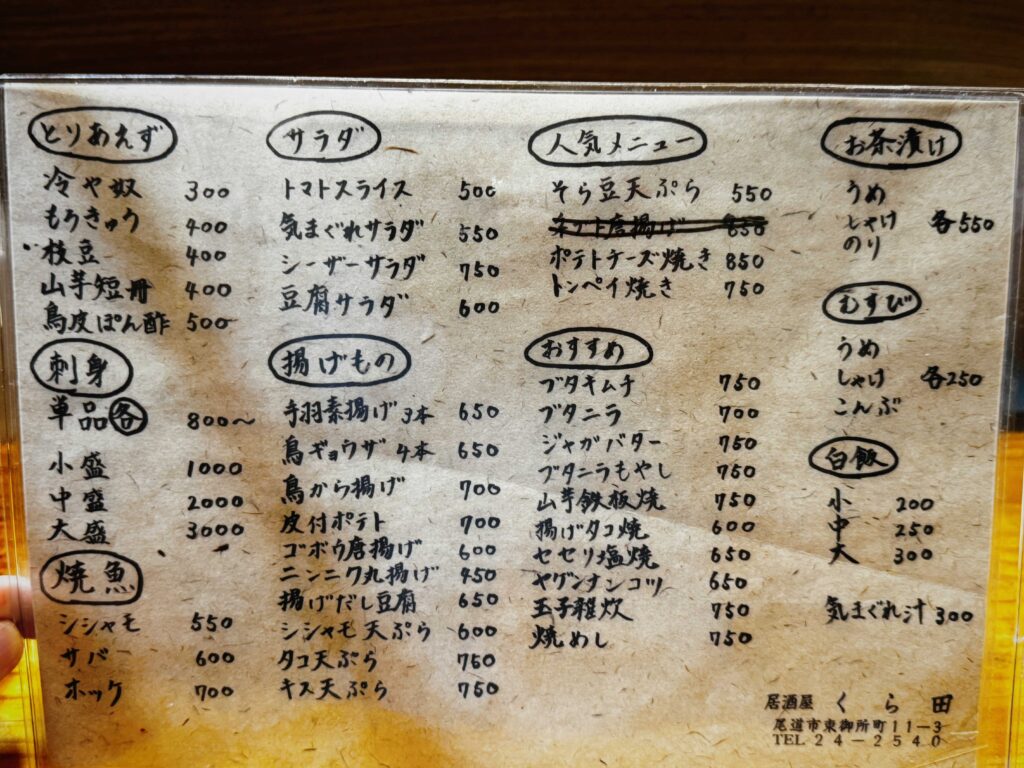 とりあえず
冷や奴 300
もろきゅう 400
枝豆 400
山芋短冊 400
鳥皮ぽん酢 500
刺身
単品各 800〜
小盛 1000
中盛 2000
大盛 3000
焼魚
シシャモ 550
サバ 600
ホッケ 700
サラダ
トマトスライス 500
気まぐれサラダ 550
シーザーサラダ 750
豆腐サラダ 600
揚げもの
手羽素揚げ3本 650
鳥ギョウザ4本 650
鳥から揚げ 700
皮付ポテト 700
ゴボウ唐揚げ 600
ニンニク丸揚げ 450
揚げだし豆腐 650
シシャモ天ぷら 600
タコ天ぷら 750
キス天ぷら 750
人気メニュー
そら豆天ぷら 550
唐揚げ 650
ポテトチーズ焼き 850
トンペイ焼き 750
おすすめ
ブタキムチ 750
ブタニラ 700
ジャガバター 750
ブタニラもやし 750
山芋鉄板焼 750
揚げタコ焼 600
セセリ塩焼 650
ヤゲンナンコツ 650
玉子雑炊 750
焼めし 750
お茶漬け
うめ
しゃけ 各550
のり
むすび
うめ
しゃけ 各250
こんぶ
白飯
小 200
中 250
大 300
気まぐれ汁 300
居酒屋 くら田
尾道市東御所町11-3
TEL 24-2540